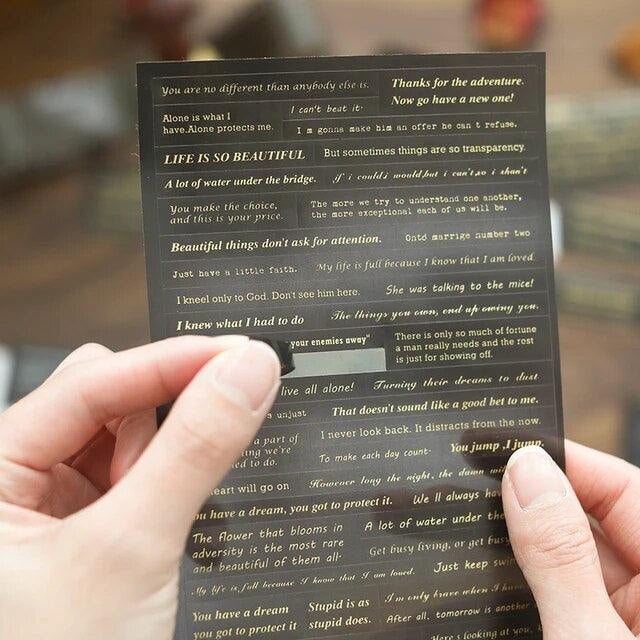 You are no different than anybody else is.
Thanks for the adventure.
Now go have a new one!
Alone is what I
have.Alone protects me.
I can't beat it·
I m gonna make him an offer he can t refuse.
LIFE IS SO BEAUTIFUL
But sometimes things are so transparency.
A lot of water under the bridge.
if i could,i would,but i can't,so i shan't
You make the choice,
and this is your price.
The more we try to understand one another,
the more exceptional each of us will be.
Beautiful things don't ask for attention.
Onto marrige number two
Just have a little faith.
My life is full because I know that I am loved.
I kneel only to God. Don't see him here.
She was talking to the mice!
I knew what I had to do
The things you own, end up owing you.
your enemies away"
There is only so much of fortune
a man really needs and the rest
is just for showing off.
live all alone!
Turning their dreams to dust
s unjust
That doesn't sound like a good bet to me.
a part of
ing we're
ed to do.
I never look back. It distracts from the now.
To make each day count·
You jump ,I jump.
heart will go on
However long the night, the dawn
ou have a dream, you got to protect it.
We ll always
The flower that blooms in
adversity is the most rare
and beautiful of them all·
A lot of water under the
Get busy living, or get busy
My life is full because I know that I am loved.
Just keep
You have a dream
you got to protect it
Stupid is as
stupid does.
I'm only brave when I have
After all, tomorrow is another
Here's looking at you,